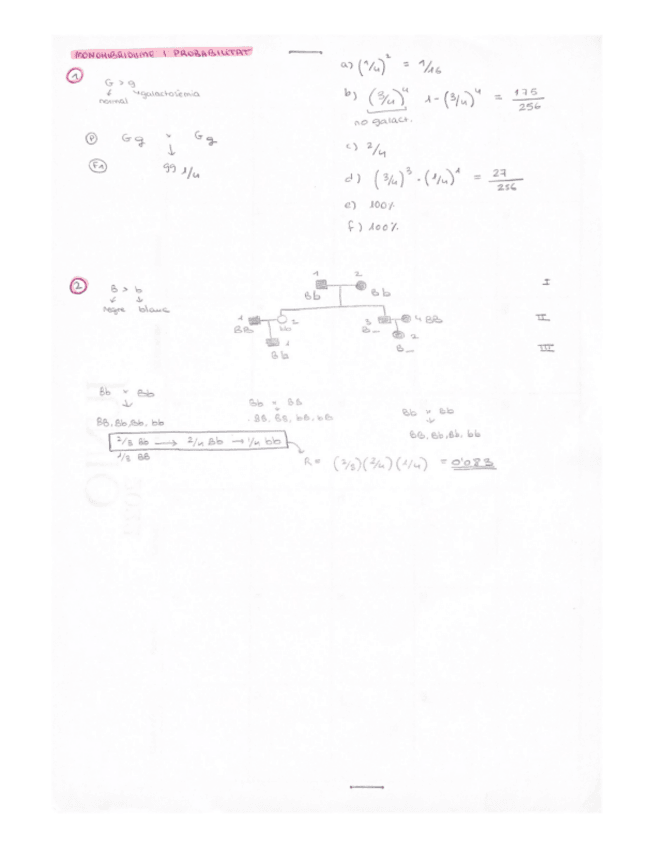 MONOHIBRIDISME I PROBABILITAT
1
G > g
normal galactosèmia
P Gg × Gg
F1 gg 1/4
a) (1/4)² = 1/16
b) (3/4)⁴ 1-(3/4)⁴ = 175/256
no galact.
c) 2/4
d) (3/4)³ · (1/4)¹ = 27/256
e) 100%
f) 100%
2
B > b
negre blanc
1 2 I
Bb Bb
1 2 3 4 BB II
BB bb B_
1 2 III
Bb B_
Bb × Bb
BB, Bb, Bb, bb
Bb × BB
BB, BB, bB, bB
Bb × Bb
BB, Bb, Bb, bb
2/3 Bb → 2/4 Bb → 1/4 bb
1/3 BB
R= (2/3)(2/4)(1/4) = 0'083